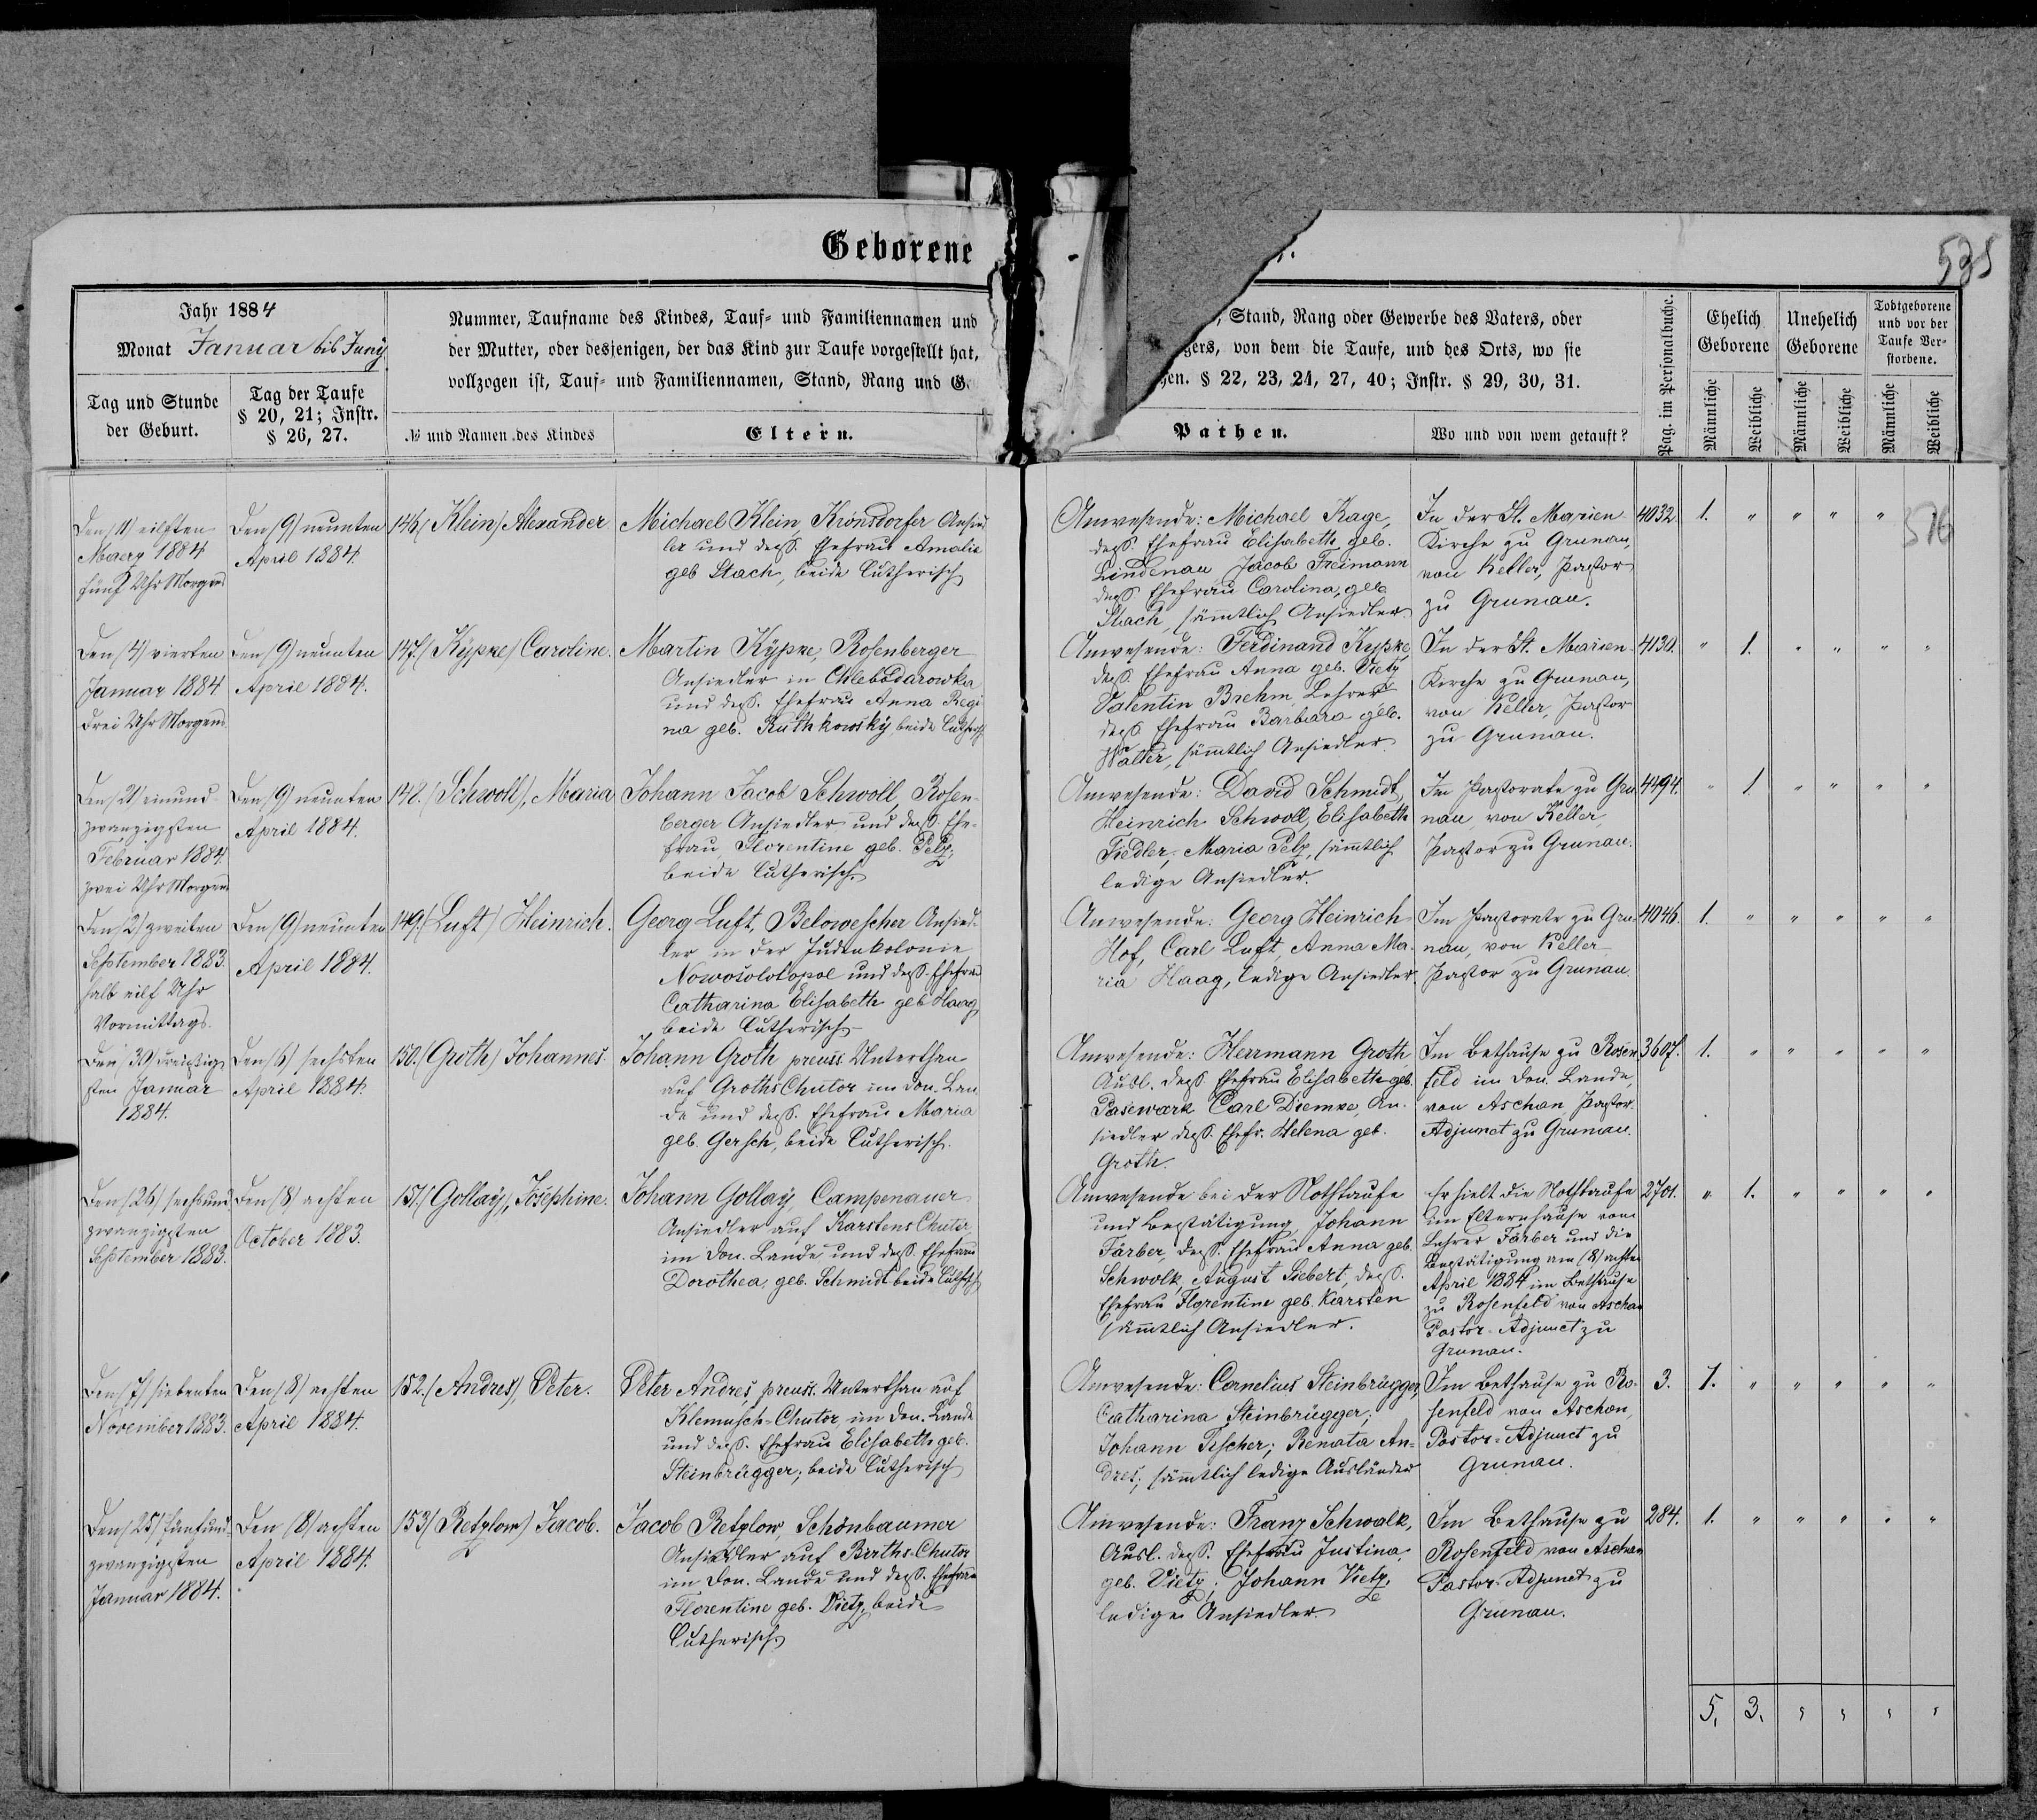 Geborene
535
Jahr 1884
Monat Januar bis Juny
Tag und Stunde
der Geburt.
Tag der Taufe
§ 20, 21; Instr.
§ 26, 27.
Nummer, Taufname des Kindes, Tauf- und Familiennamen und
der Mutter, oder desjenigen, der das Kind zur Taufe vorgestellt hat,
vollzogen ist, Tauf- und Familiennamen, Stand, Rang und G
№ und Namen des Kindes
Eltern.
Stand, Rang oder Gewerbe des Vaters, oder
gers, von dem die Taufe, und des Orts, wo sie
gen. § 22, 23, 24, 27, 40; Instr. § 29, 30, 31.
Pathen.
Wo und von wem getauft?
Pag. im Personalbuche.
Ehelich
Geborene
Unehelich
Geborene
Todtgeborene
und vor der
Taufe Ver-
storbene.
Männliche
Weibliche
Männliche
Weibliche
Männliche
Weibliche
516
Den (11) eilften
Maerz 1884
fünf Uhr Morgens
Den (9) neunten
April 1884.
146. (Klein) Alexander
Michael Klein, Kronsdorfer Ansied
ler und dess. Ehefrau Amalie
geb Stach, beide lutherisch
Anwesende: Michael Kage,
dess. Ehefrau Elisabeth geb.
Lindenau Jacob Freimann
dess. Ehefrau Carolina, geb
Stach, sämmtlich Ansiedler
In der St. Marien
Kirche zu Grunau,
von Keller, Pastor
zu Grunau.
4032. 1. " " " "
Den (4) vierten
Januar 1884
drei Uhr Morgens
Den (9) neunten
April 1884.
147. (Kypke) Caroline.
Martin Kypke, Rosenberger
Ansiedler in Chlebodarowka
und dess. Ehefrau Anna Regi
na geb. Ruthkowsky beide luthersch
Anwesende: Ferdinand Kypke
dess. Ehefrau Anna geb. Vietz
Valentin Brehm, Lehrer
dess. Ehefrau Barbara geb.
Walter, sämmtlich Ansiedler
In der St. Marien-
Kirche zu Grunau,
von Keller, Pastor
zu Grunau.
4130. " 1. " " " "
Den (21) einund-
zwanzigsten
Februar 1884.
zwei Uhr Morgens
Den (9) neunten
April 1884.
148. (Schwoll), Maria
Johann Jacob Schwoll, Rosen-
berger Ansiedler und dess. Ehe-
frau Florentine geb. Pelz,
beide lutherisch
Anwesende: David Schmidt,
Heinrich Schwoll, Elisabeth
Fiedler, Maria Pelz, sämmtlich
ledige Ansiedler.
Im Pastorate zu Gru-
nau, von Keller,
Pastor zu Grunau.
4494. " 1 " " " "
Den (2) zweiten
September 1883.
halb eilf Uhr
Vormittags.
Den (9) neunten
April 1884.
149. (Luft) Heinrich.
Georg Luft, Belowescher Ansied-
ler in der Judenkolonie
Nowosolotopol und dess. Ehefrau
Catharina Elisabeth geb Haag
beide lutherisch
Anwesende: Georg Heinrich
Hof, Carl Luft, Anna Ma-
ria Haag, ledige Ansiedler.
Im Pastorate zu Gru-
nau, von Keller
Pastor zu Grunau
4046. 1. " " " " "
Den (30) dreißig
sten Januar
1884.
Den (6) sechsten
April 1884.
150. (Groth) Johannes.
Johann Groth preuss. Unterthan
auf Groths Chutor im Don. Lan
de und dess. Ehefrau Maria
geb. Gersch, beide lutherisch.
Anwesende: Herrmann Groth
Ausl. dess. Ehefrau Elisabeth geb.
Pasewark Carl Diemke, An-
siedler dess. Ehefr. Helena geb.
Groth.
Im Bethause zu Rosen
feld im Don. Lande,
von Aschan Pastor-
Adjunct zu Grunau.
3607. 1. " " " " "
Den (26) sechsund
zwanzigsten
September 1883.
Den (8) achten
October 1883.
151. (Gollay), Josephine.
Johann Gollay, Campenauer
Ansiedler auf Karstens Chutor
im Don. Lande und dess. Ehefrau
Dorothea, geb. Schmidt beide luthersch
Anwesende bei der Nothtaufe
und Bestätigung, Johann
Färber, dess. Ehefrau Anna geb.
Schwolk, August Siebert, dess.
Ehefrau Florentine geb. Karsten
sämmtlich Ansiedler.
Erhielt die Nothtaufe
im Elternhause vom
Lehrer Färber und die
Bestätigung am (8) achten
April 1884 im Bethause
zu Rosenfeld von Aschan
Pastor-Adjunct zu
Grunau.
2701. " 1. " " " "
Den (7) siebenten
November 1883.
Den (8) achten
April 1884.
152. (Andres), Peter.
Peter Andres, preuss. Unterthan auf
Klemusch-Chutor im Don. Lande
und dess. Ehefrau Elisabeth geb.
Steinbrügger, beide lutherisch
Anwesende: Cornelius Steinbrügger,
Catharina Steinbrügger;
Johann Fischer; Renata An-
dres, sämmtlich ledige Ausländer
Im Bethause zu Ro-
senfeld von Aschan,
Pastor-Adjunct zu
Grunau.
3. 1. " " " " "
Den (25) fünfund-
zwanzigsten
Januar 1884.
Den (8) achten
April 1884.
153. (Retzlow) Jacob.
Jacob Retzlow, Schönbaumer
Ansiedler auf Chutor
im Don. Lande und dess. Ehefrau
Florentine geb. Vietz, beide
lutherisch
Anwesende: Franz Schwalk,
Ausl. dess. Ehefrau Justina,
geb. Vietz; Johann Vietz,
ledige Ansiedler
Im Bethause zu
Rosenfeld von Aschan
Pastor-Adjunct zu
Grunau.
284. 1. " " " " "
5. 3. " " " "